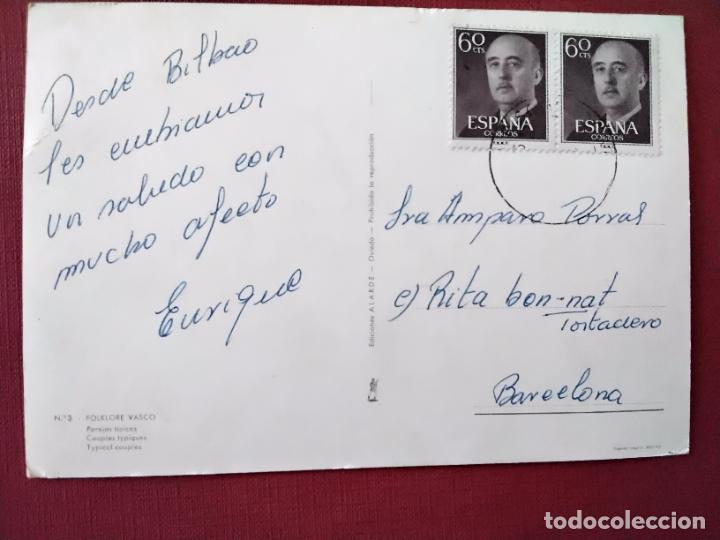 Desde Bilbao
les embiamos
un saludo con
mucho afecto
Enrique
N.º 3 - FOLKLORE VASCO
Parejas típicas
Couples typiques
Typical couples
Ediciones ALARDE - Oviedo - Prohibida la reproducción
60 CTS
ESPAÑA
CORREOS
60 CTS
ESPAÑA
CORREOS
Sra Amparo Porras
c) Rita bon-nat
Tostadero
Barcelona
todocoleccion